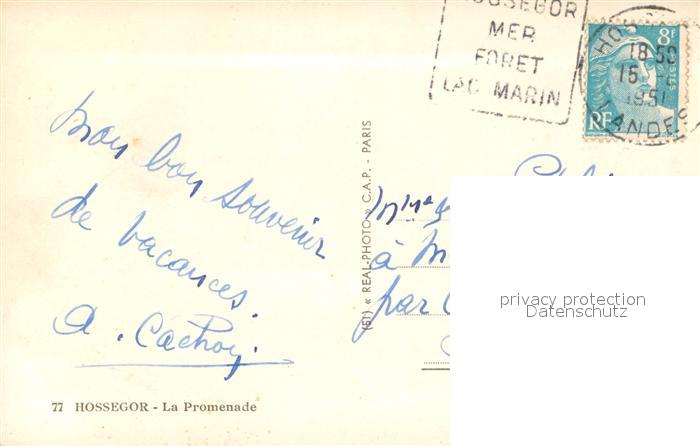 HOSSEGOR
MER
FORET
LAC MARIN
HOS
18 50
15
1951
LANDES
8F
POSTES
RF
Mon bon souvenir
de vacances.
A. Cachoy.
(51) « REAL-PHOTO » C.A.P. - PARIS
Mme
à M
par
privacy protection
Datenschutz
77 HOSSEGOR - La Promenade